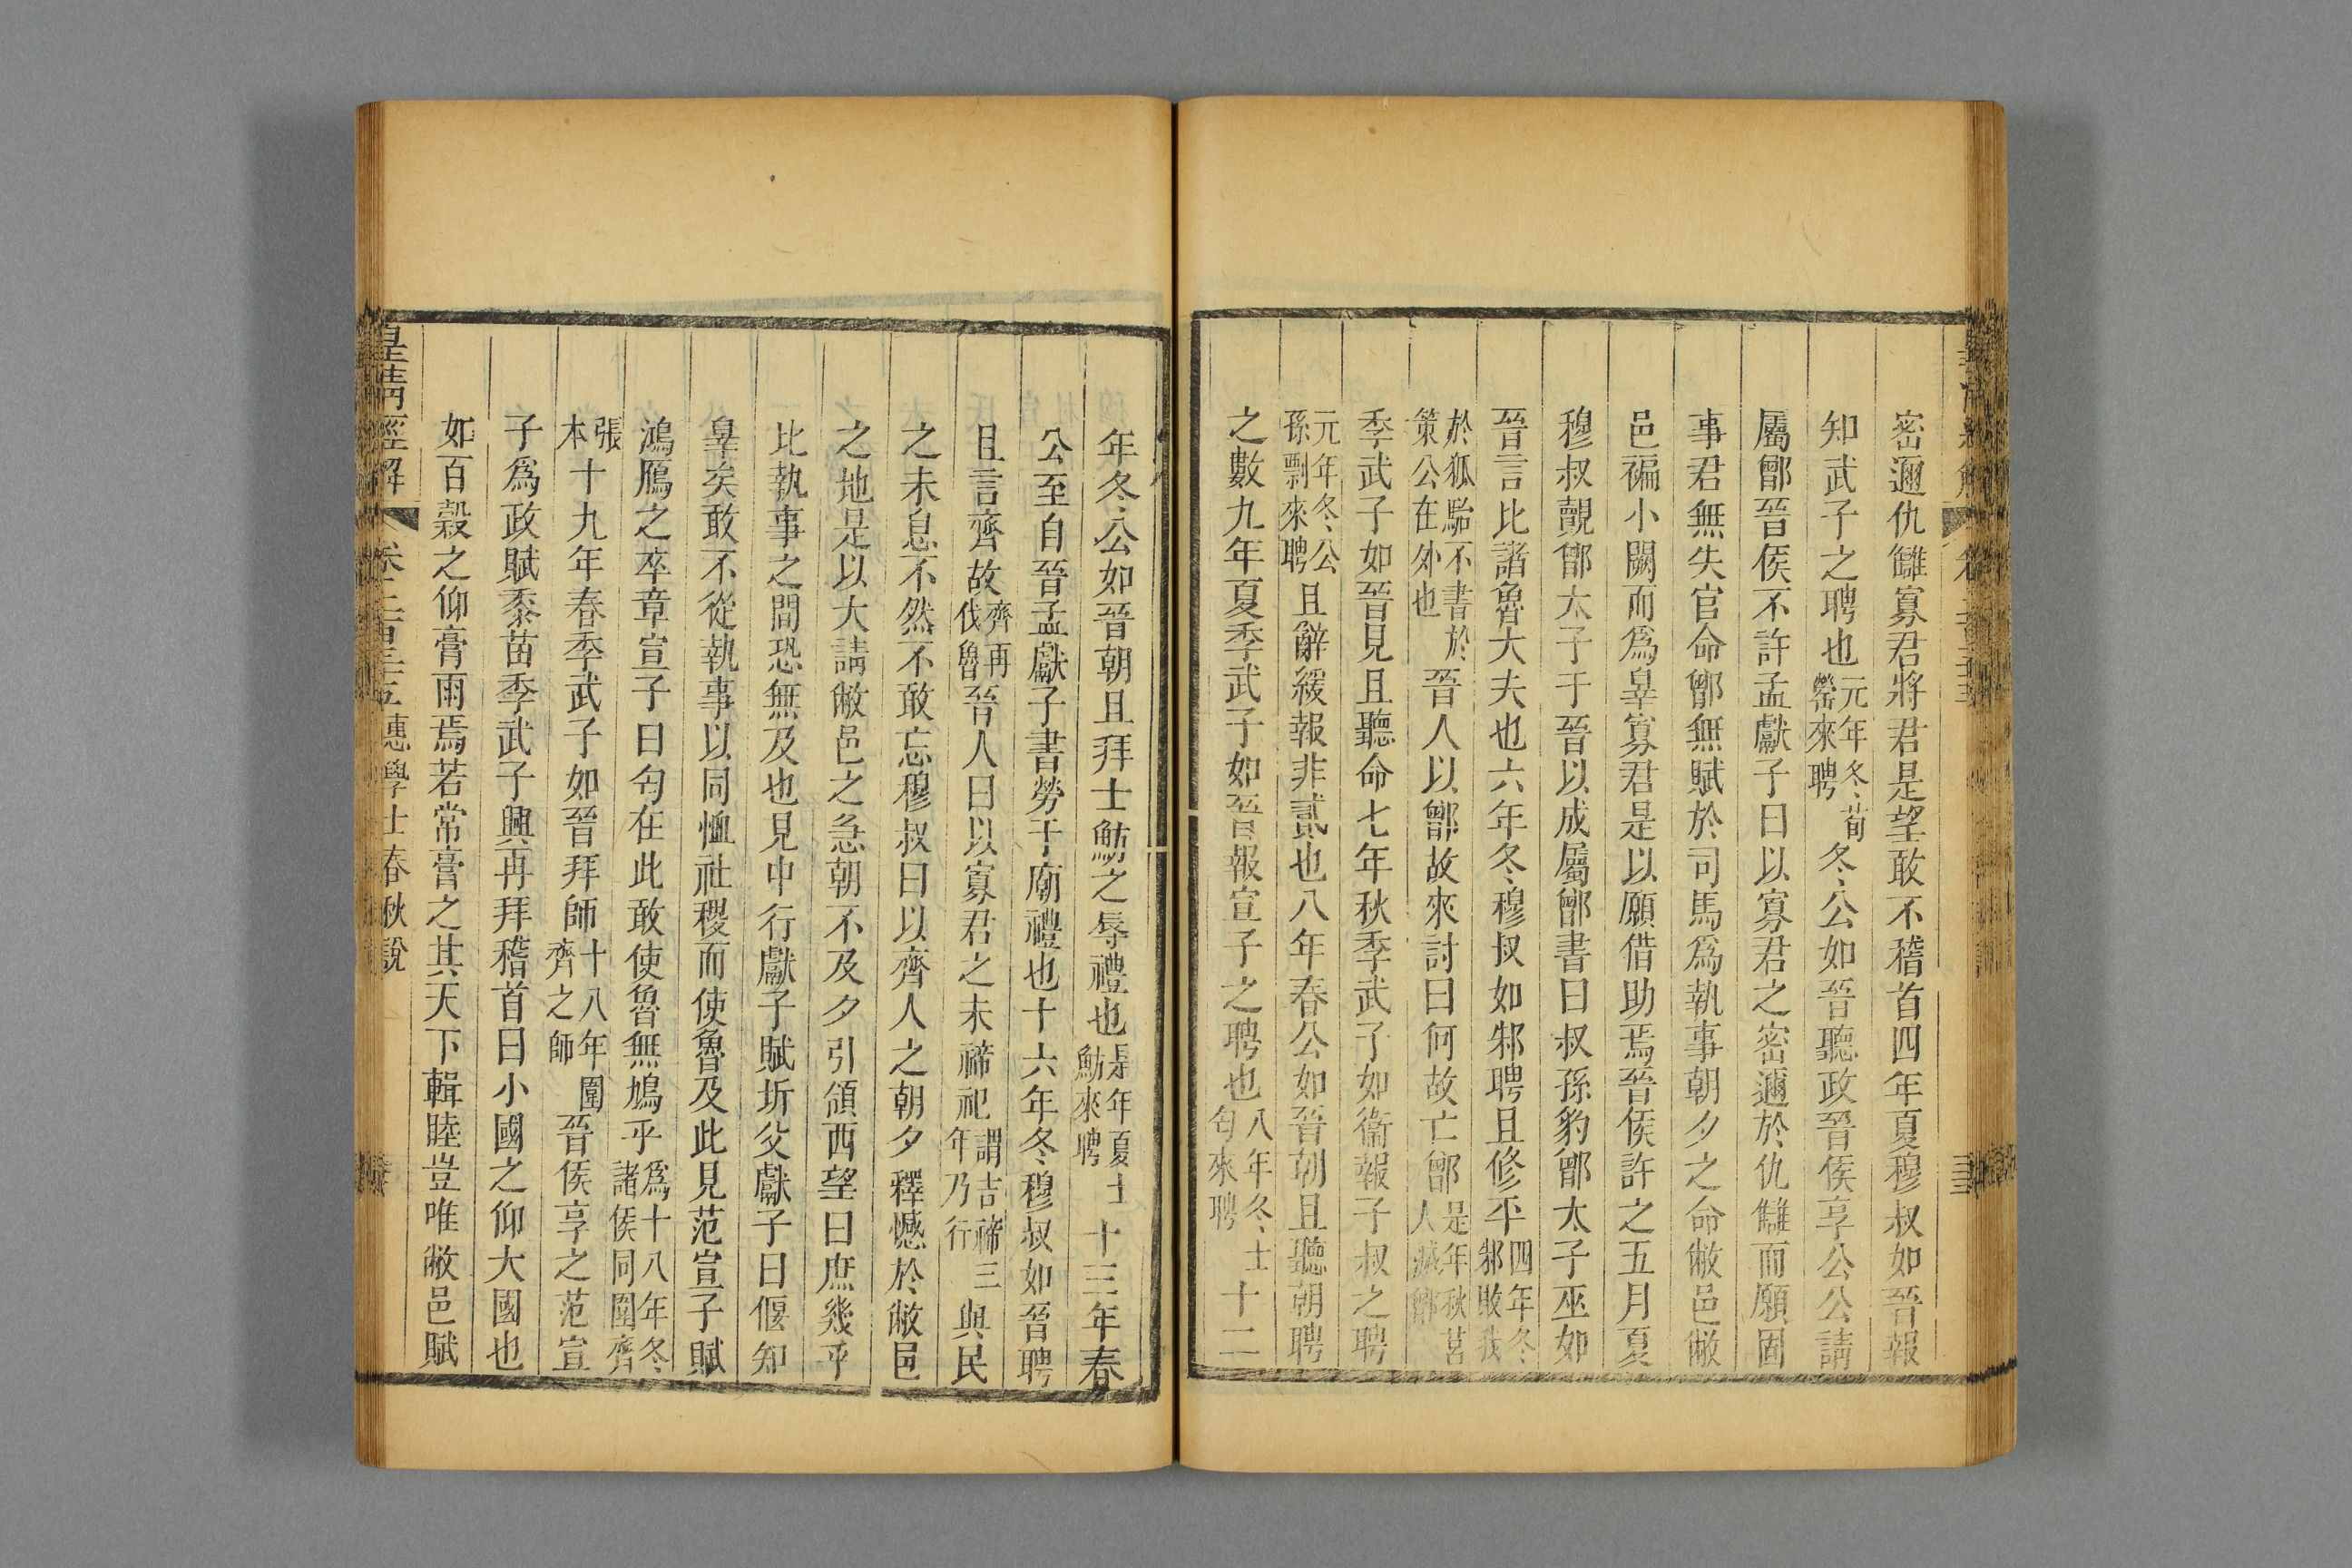 密邇仇讎寡君將君是望敢不稽首四年夏穆叔如晉報
知武子之聘也元年冬荀罃來聘冬公如晉聽政晉侯享公公請
屬鄫晉侯不許孟獻子曰以寡君之密邇於仇讎而願固
事君無失官命鄫無賦於司馬爲執事朝夕之命敝邑敝
邑褊小闕而爲辠寡君是以願借助焉晉侯許之五月夏
穆叔覿鄫太子于晉以成屬鄫書曰叔孫豹鄫太子巫如
晉言比諸魯大夫也六年冬穆叔如邾聘且修平四年冬邾敗我
於狐駘不書於策公在外也晉人以鄫故來討曰何故亡鄫是年秋莒人滅鄫
季武子如晉見且聽命七年秋季武子如衞報子叔之聘
元年冬公孫剽來聘且辭緩報非貳也八年春公如晉朝且聽朝聘
之數九年夏季武子如晉報宣子之聘也八年冬士匄來聘十二
年冬公如晉朝且拜士魴之辱禮也是年夏士魴來聘十三年春
公至自晉孟獻子書勞于廟禮也十六年冬穆叔如晉聘
且言齊故齊再伐魯晉人曰以寡君之未禘祀謂吉禘三年乃行與民
之未息不然不敢忘穆叔曰以齊人之朝夕釋憾於敝邑
之地是以大請敝邑之急朝不及夕引領西望曰庶幾乎
比執事之間恐無及也見中行獻子賦圻父獻子曰偃知
辠矣敢不從執事以同恤社稷而使魯及此見范宣子賦
鴻鴈之卒章宣子曰匄在此敢使魯無鳩乎爲十八年冬諸侯同圍齊
張本十九年春季武子如晉拜師十八年圍齊之師晉侯享之范宣
子爲政賦黍苗季武子興再拜稽首曰小國之仰大國也
如百穀之仰膏雨焉若常膏之其天下輯睦豈唯敝邑賦
皇淸經解 卷二百三五惠學士春秋說